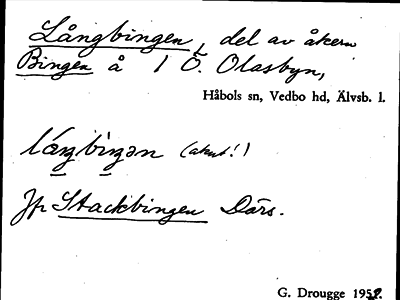 Långbingen, del av åkern
Bingen å 1 Ö. Olasbyn,
Håbols sn, Vedbo hd, Älvsb. l.
(akut!)
Jfr Stackbingen Därs.
G. Drougge 1952.